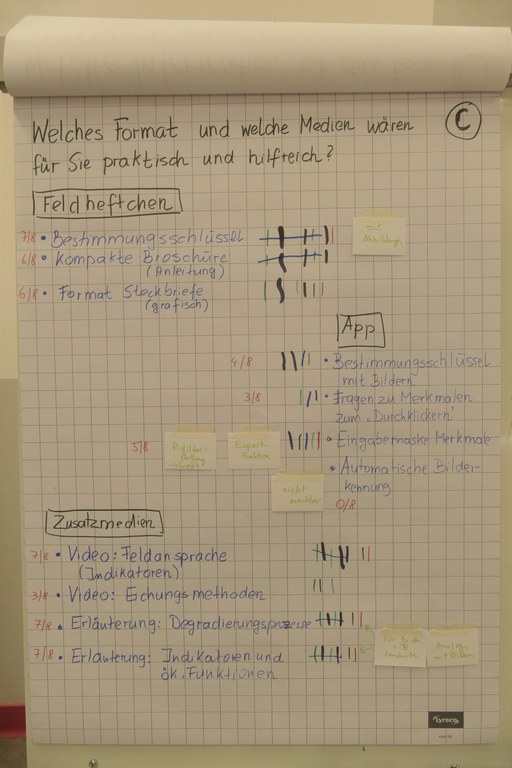 Welches Format und welche Medien wären
für Sie praktisch und hilfreich?
C
Feldheftchen
7/8 • Bestimmungsschlüssel
mit
Abbildungen
6/8 • Kompakte Broschüre
(Anleitung)
6/8 • Format Steckbriefe
(grafisch)
App
4/8 • Bestimmungsschlüssel
mit Bildern
3/8 • Fragen zu Merkmalen
zum "Durchklickern"
5/8 • Eingabemaske Merkmale
Export
funktion
• Automatische Bilder-
kennung
0/8
nicht
machbar
Zusatzmedien
7/8 • Video: Feldansprache
(Indikatoren)
3/8 • Video: Eichungsmethoden
7/8 • Erläuterung: Degradierungsprozesse
7/8 • Erläuterung: Indikatoren und
ök. Funktionen
mit Bildern